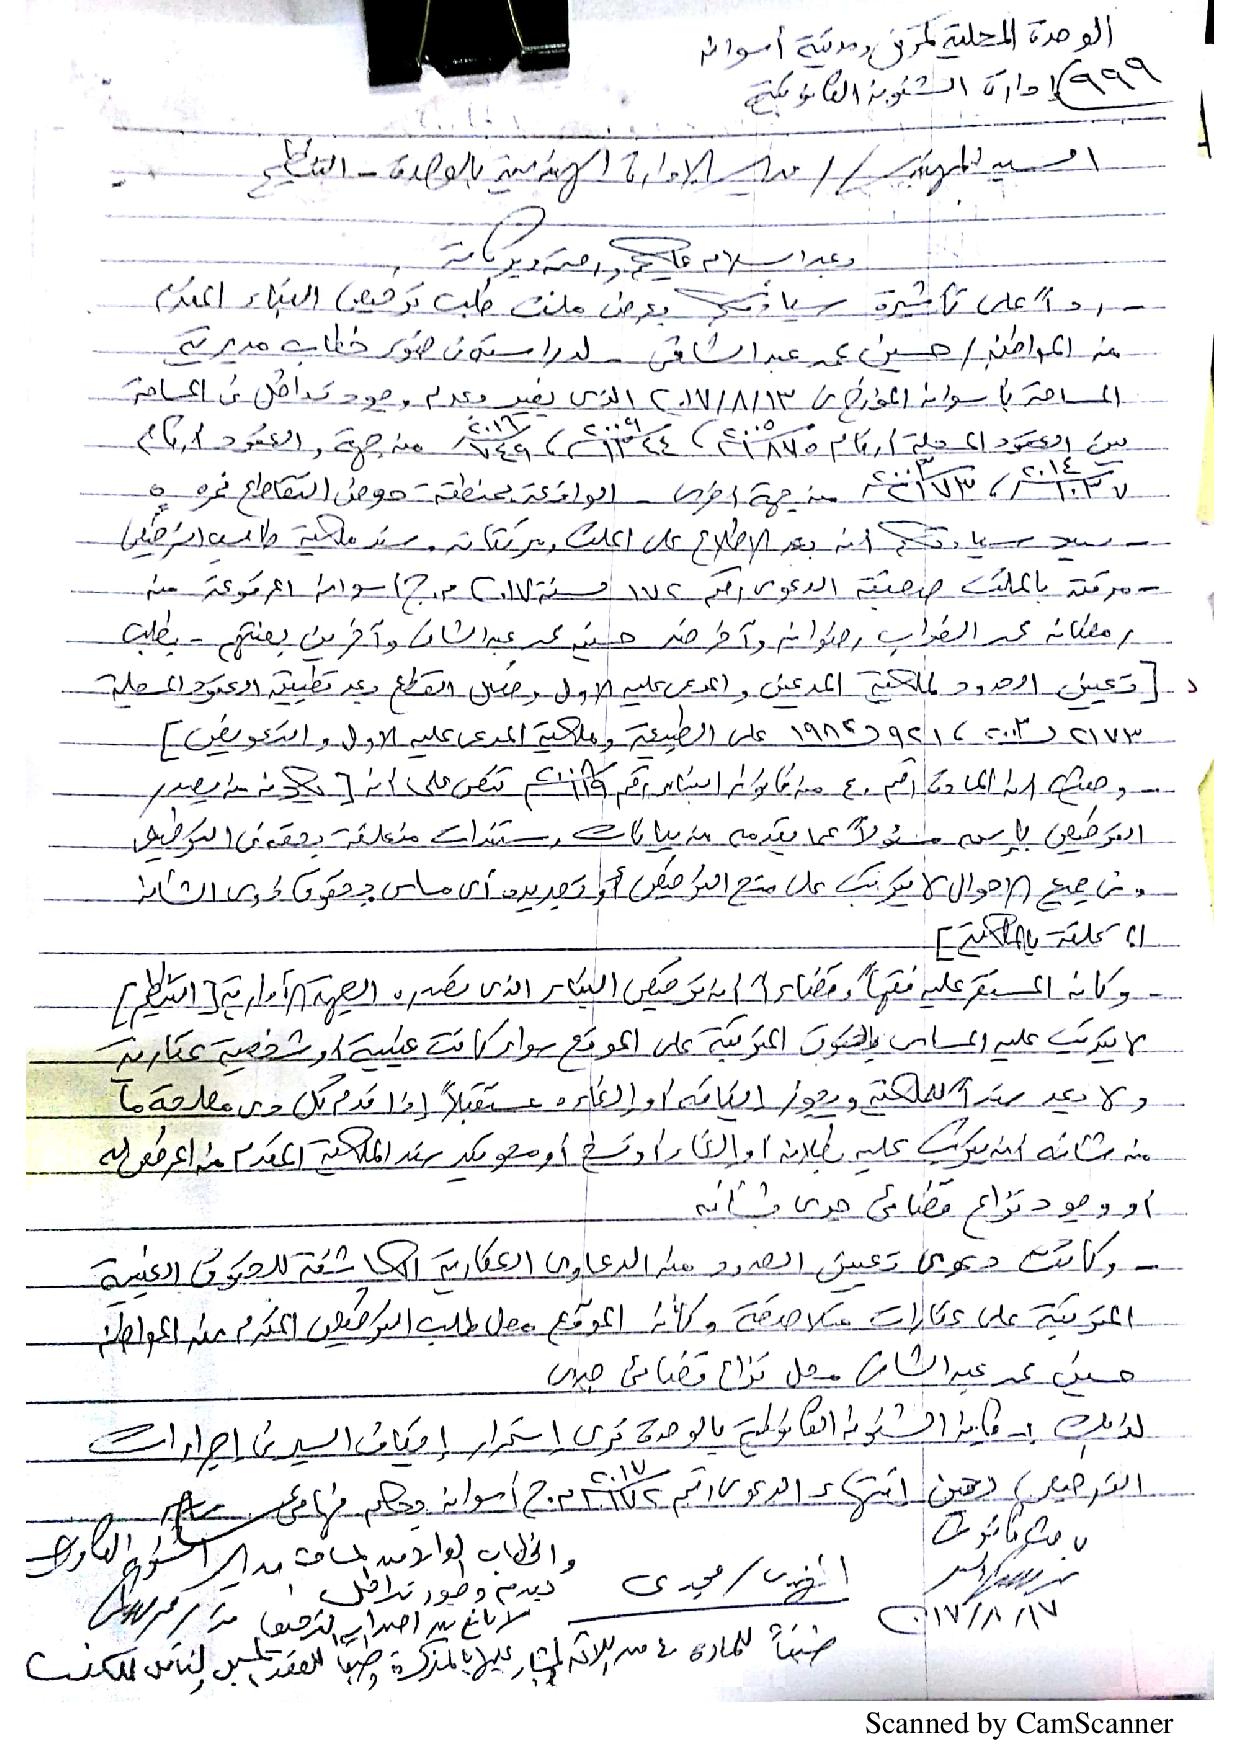 الوحدة المحلية لمركز ومدينة أسوان
٩٩٩ إدارة الشئون القانونية
السيد المهندس / مدير الإدارة الهندسية بالوحدة - التنظيم
وعبد السلام عليكم ورحمة وبركاته
- رداً على تأشيرة سيادتكم بعرض ملف طلب ترخيص البناء المقدم
من المواطن / حسين محمد عبد الشافى - لدراسته فى ضوء خطاب مديرية
المساحة بأسوان المؤرخ فى ٢٠١٧/٨/١٣ الذى يفيد بعدم وجود تداخل فى المساحة
بين العقود المسجلة أرقام ٨٧٥ / ٢٠٠٥ ، ١٣٤٤ / ٢٠٠٩ ، ٧٤٩ / ٢٠١٦ من جهة والعقود أرقام
١٠٣٧ / ٢٠١٤ ، ٢١٧٣ / ٢٠٠٣ من جهة أخرى - الواقعة بمنطقة حوض التقاطع نمره ٥
- نفيد سيادتكم أنه بعد الاطلاع على الملف ومرفقاته وسند ملكية طالب الترخيص
- مرفق بالملف صحيفة الدعوى رقم ١٧٢ لسنة ٢٠١٧ م.ج أسوان المرفوعة من
رمضان محمد رضوان وآخر ضد حسين محمد عبد الشافى وآخرين بصفتهم - بطلب
[تعيين الحدود لملكية المدعين والمدعى عليه الأول وفصل القطع بعد تطبيق العقود المسجلة
٢١٧٣ / ٢٠٠٣ ، ٩٢١ / ١٩٨٢ على الطبيعة وملكية المدعى عليه الأول والتعويض]
- وحيث أن المادة رقم ٤٠ من قانون البناء رقم ١١٩ / ٢٠٠٨ تنص على أنه [يكون من يصدر
الترخيص باسمه مسئولاً عما يقدمه من بيانات ومستندات متعلقة بحقه فى الترخيص
وفى جميع الأحوال لا يترتب على منح الترخيص أو تجديده أى مساس بحقوق ذوى الشأن
المتعلقة بالملكية]
- وكان المستقر عليه فقهاً وقضاءاً أن ترخيص البناء الذى تصدره الجهة الإدارية [التنظيم]
لا يترتب عليه المساس بالحقوق المترتبة على الموقع سواء كانت عينية أو شخصية عقارية
ولا يعد سند للملكية ويجوز إيقافه أو إلغاءه مستقبلاً إذا قدم كل ذى مصلحة ما
من شأنه أن يترتب عليه بطلان أو إلغاء أو فسخ أو محو سند الملكية المقدم من المرخص له
أو وجود نزاع قضائى جدى بشأنه
- وكانت دعوى تعيين الحدود من الدعاوى العقارية الكاشفة للحقوق العينية
المترتبة على عقارات متلاصقة وكان الموقع محل طلب الترخيص المقدم من المواطن
حسين محمد عبد الشافى محل نزاع قضائى جدى
لذلك :- فإن الشئون القانونية بالوحدة ترى استمرار إيقاف السير فى إجراءات
الترخيص لحين انتهاء الدعوى رقم ١٧٢ / ٢٠١٧ م.ج أسوان بحكم نهائى
باحث قانونى
مدير الشئون القانونية
٢٠١٧/٨/١٧
المهندس / مجدى
والخطاب الوارد من المساحة
بعدم وجود تداخل
لا مانع من إصدار الترخيص
طبقاً للمادة ٤٠ من اللائحة المشار عليها بالمذكرة وطبقاً للعقد المسجل
Scanned by CamScanner